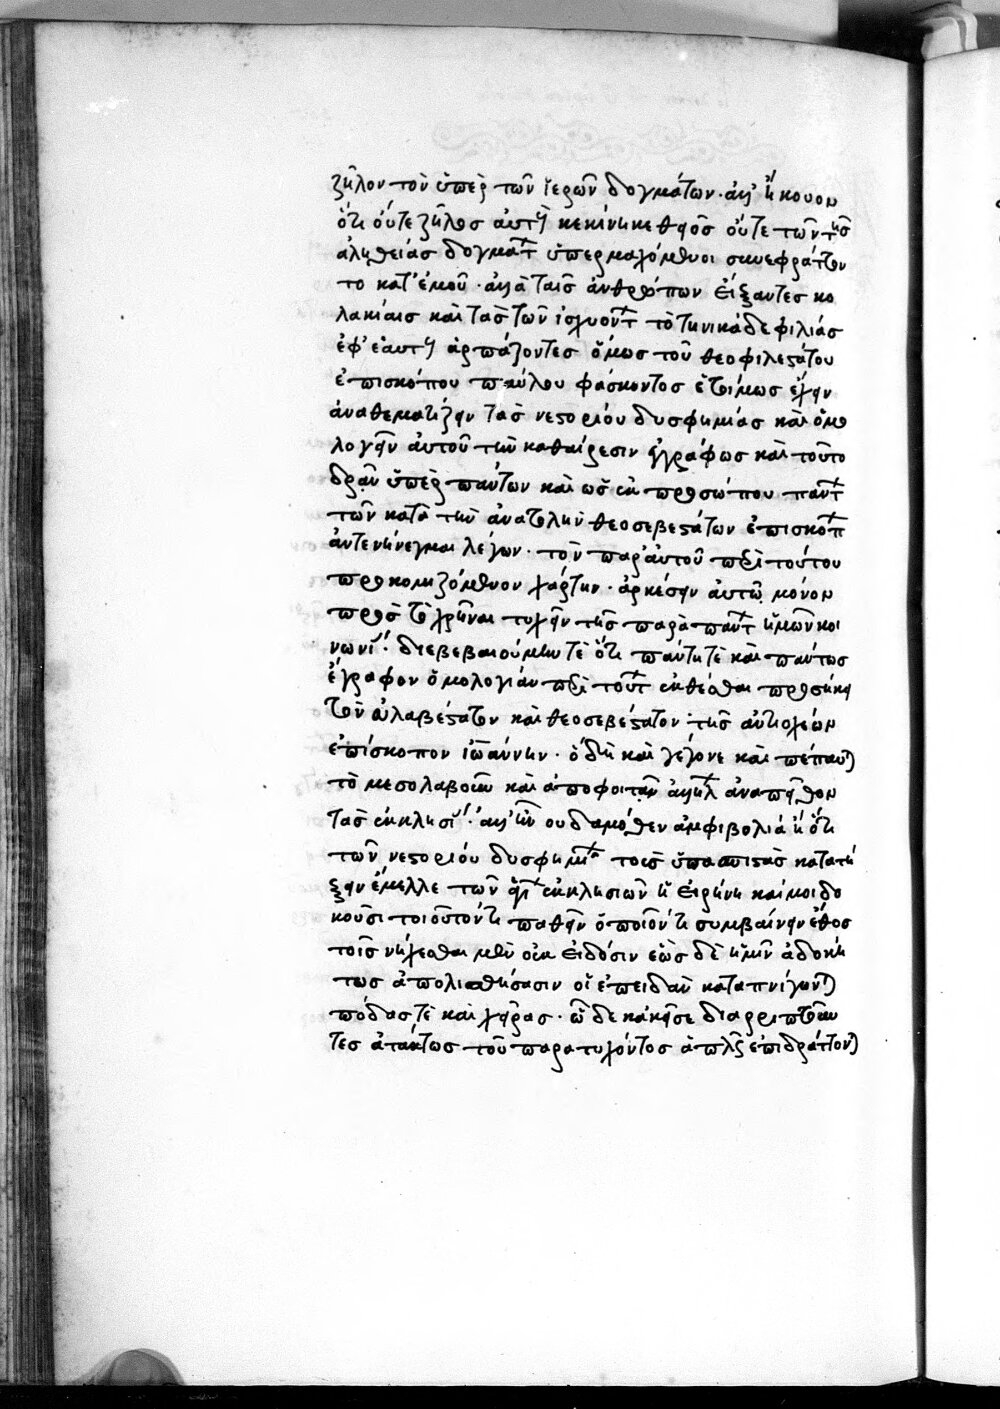 ζῆλον τὸν ὑπὲρ τῶν ἱερῶν δογμάτων· ἀλλ' ἤκουον
ὅτι οὔτε ζῆλος αὐτοὺς κεκίνηκε θεῖος οὔτε τῶν τῆς
ἀληθείας δογμάτ ὑπερμαχόμενοι συνεφράττον
το κατ' ἐμοῦ· ἀλλὰ ταῖς ἀνθρώπων εἴξαντες κο
λακίαις καὶ τὰς τῶν ἰσχυόντ τὸ τηνικάδε φιλίας
ἐφ' ἑαυτοὺς ἁρπάζοντες ὅμως τοῦ θεοφιλεστάτου
ἐπισκόπου παύλου φάσκοντος ἑτοίμως ἔχειν
ἀναθεματίζειν τὰς νεστορίου δυσφημίας καὶ ὁμο
λογεῖν αὐτοῦ τὴν καθαίρεσιν ἐγγράφως καὶ τοῦτο
δρᾷν ὑπὲρ πάντων καὶ ὡς ἐκ προσώπου πάντ
τῶν κατὰ τὴν ἀνατολὴν θεοσεβεστάτων ἐπισκόπ
ἀντενήνεγμαι λέγων· τὸν παρ' αὐτοῦ περὶ τούτου
προκομιζόμενον χάρτην· ἀρκέσειν αὐτῷ μόνον
πρὸς τὸ χρῆναι τυχεῖν τῆς παρὰ πάντ ἡμῶν κοι
νωνί· διεβεβαιούμην τὲ ὅτι πάντη τὲ καὶ πάντως
ἔγραφον ὁμολογίαν περὶ τούτ ἐκθέσθαι προσήκει
τὸν εὐλαβέστατον καὶ θεοσεβέστατον τῆς ἀντιοχέων
ἐπίσκοπον ἰωάννην· ὃ δὴ καὶ γέγονε καὶ πέπαυται
τὸ μεσολαβοῦν καὶ ἀποφοιτᾷν ἀλλήλ ἀναπεῖθον
τὰς ἐκκλησί· ἀλλ' ἦν ουδαμόθεν ἀμφιβολία ἢ ὅτι
τῶν νεστορίου δυσφημι τοις ὑπασπιστὰς κατατή
ξειν ἔμελλε τῶν ἁγί ἐκκλησιῶν ἡ εἰρήνη καί μοι δο
κοῦσι τοιοῦτόν τι παθεῖν ὁποῖόν τι συμβαίνειν ἔθος
τοῖς νήχεσθαι μὲν οὐκ εἰδόσιν νεὼς δὲ ἡμῖν ἀδοκή
τως ἀπολισθήσασιν οἳ ἐπειδὰν καταπνίγωνται
πόδας τὲ καὶ χεῖρας· ὧδε κἀκεῖσε διαρριπτοῦν
τες ἀτάκτως τοῦ παρατυχόντος ἁπλῶς ἐπιδράττονται